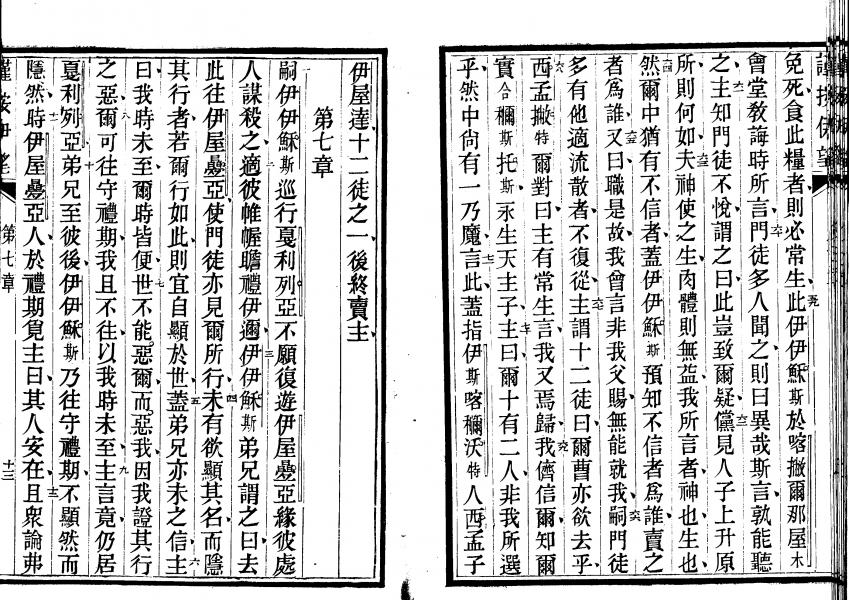 免死食此糧者則必常生此伊伊穌斯於喀撇爾那屋木
會堂教誨時所言門徒多人聞之則曰異哉斯言孰能聽
之主知門徒不悅謂之曰此豈致爾疑儻見人子上升原
所則何如夫神使之生肉體則無益我所言者神也生也
然爾中猶有不信者蓋伊伊穌斯預知不信者為誰賣之
者為誰又曰職是故我曾言非我父賜無能就我嗣門徒
多有他適流散者不復從主謂十二徒曰爾曹亦欲去乎
西孟撇特爾對曰主有常生言我又焉歸我儕信爾知爾
實合穪斯托斯永生天主子主曰爾十有二人非我所選
乎然中尚有一乃魔言此蓋指伊斯喀穪沃特人西孟子
伊屋達十二徒之一後終賣主
第七章
嗣伊伊穌斯巡行戛利列亞不願復遊伊屋疊亞緣彼處
人謀殺之適彼帷幄瞻禮伊邇伊伊穌斯弟兄謂之曰去
此往伊屋疊亞使門徒亦見爾所行未有欲顯其名而隱
其行者若爾行如此則宜自顯於世蓋弟兄亦未之信主
曰我時未至爾時皆便世不能惡爾而惡我因我證其行
之惡爾可往守禮期我且不往以我時未至主言竟仍居
戛利列亞弟兄至彼後伊伊穌斯乃往守禮期不顯然而
隱然時伊屋疊亞人於禮期覓主曰其人安在且衆論弗
第七章
十三